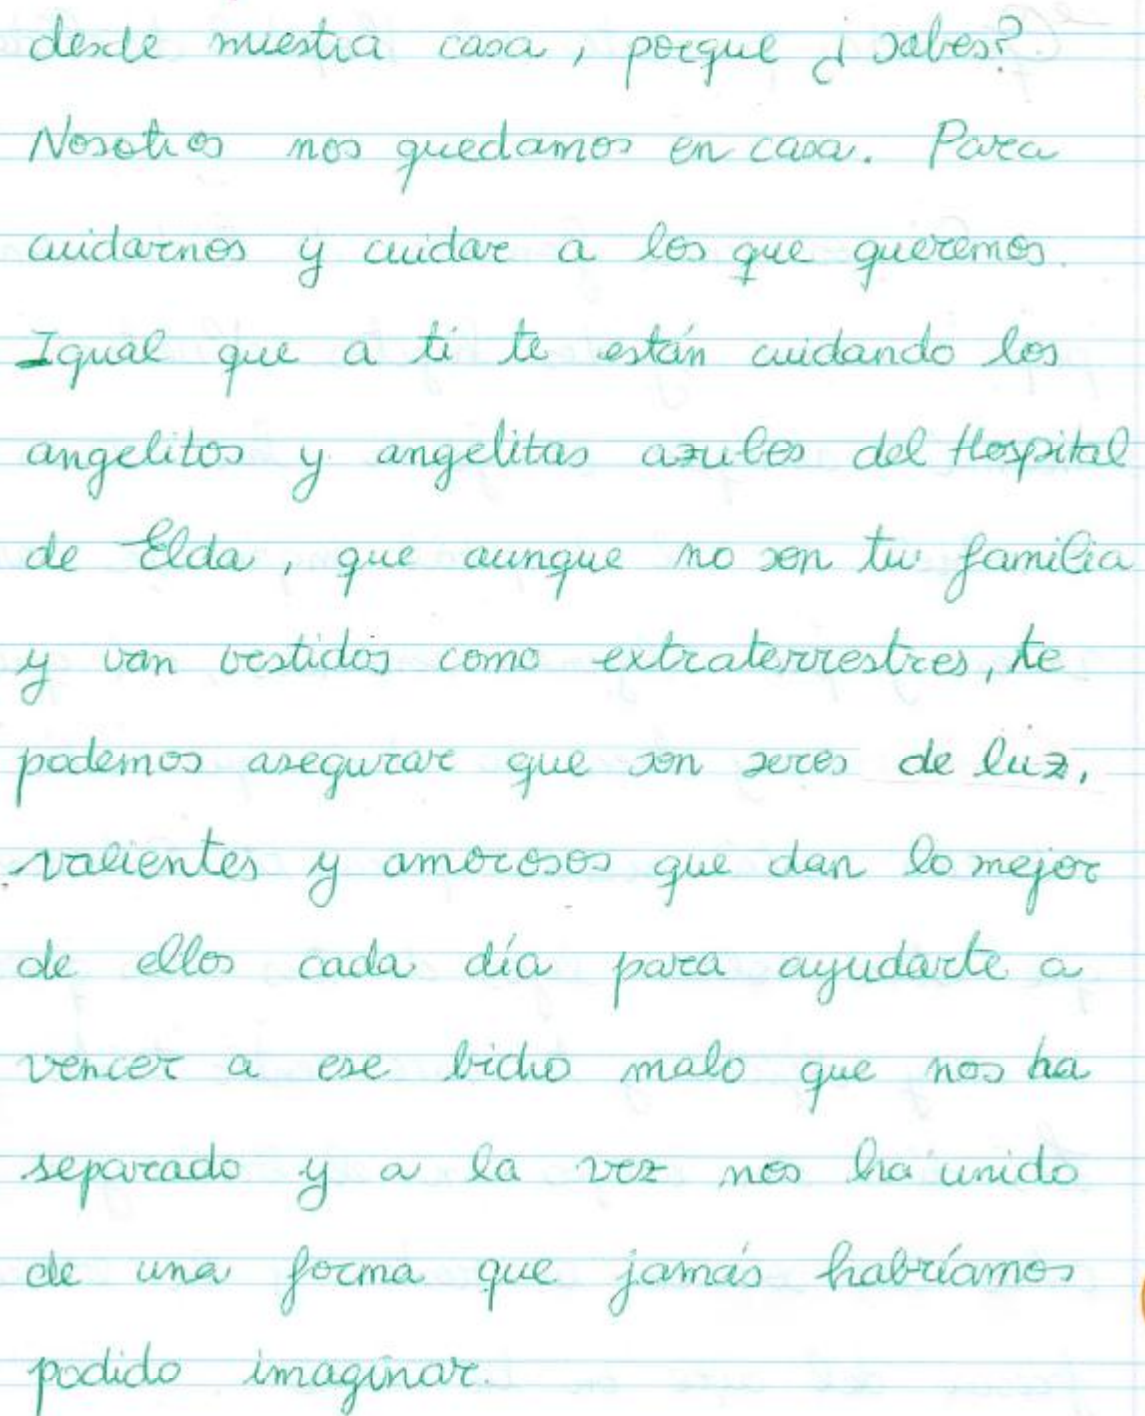 desde nuestra casa, porque ¿sabes?
Nosotros nos quedamos en casa. Para
cuidarnos y cuidar a los que queremos.
Igual que a ti te están cuidando los
angelitos y angelitas azules del Hospital
de Elda, que aunque no son tu familia
y van vestidos como extraterrestres, te
podemos asegurar que son seres de luz,
valientes y amorosos que dan lo mejor
de ellos cada día para ayudarte a
vencer a ese bicho malo que nos ha
separado y a la vez nos ha unido
de una forma que jamás habríamos
podido imaginar.